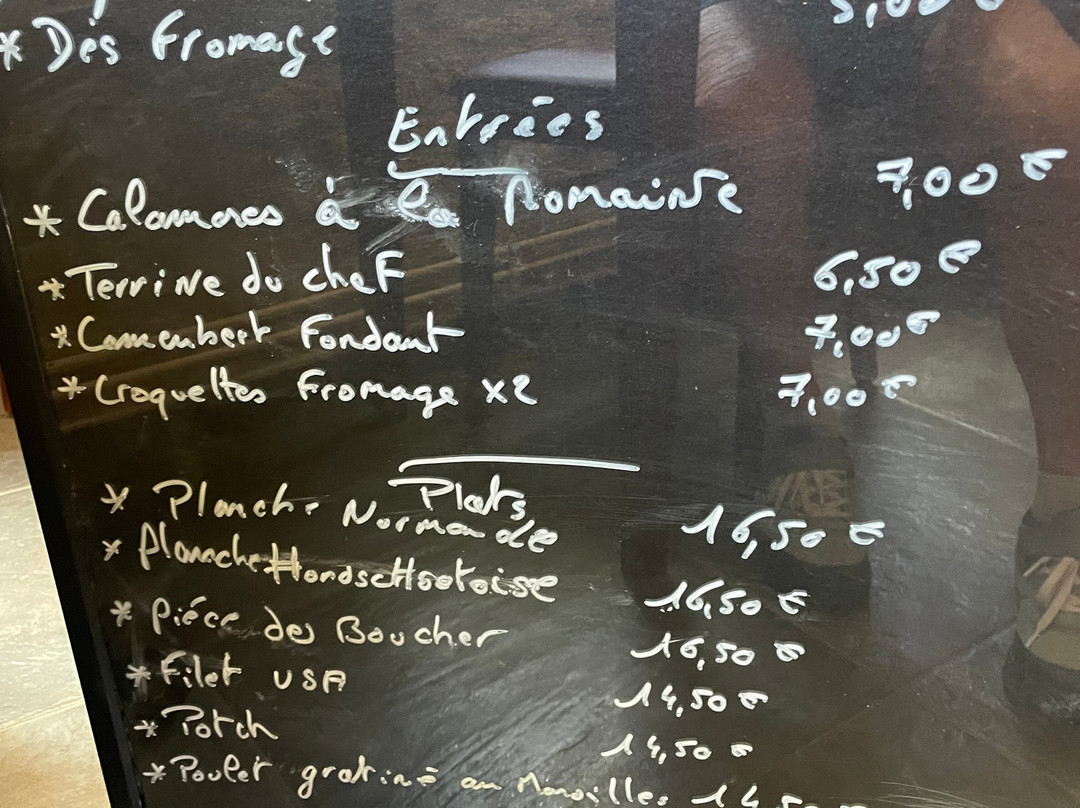 * Dés Fromage
Entrées
* Calamares à la Romaine 7,00 €
* Terrine du chef 6,50 €
* Camembert Fondant 7,00 €
* Croquettes Fromage x2 7,00 €
Plats
* Planche Normande 16,50 €
* Planche HondscHootoise 16,50 €
* Piéce des Boucher 16,50 €
* Filet USA 14,50 €
* Potch 14,50 €
* Poulet gratiné au Maroilles 14,50